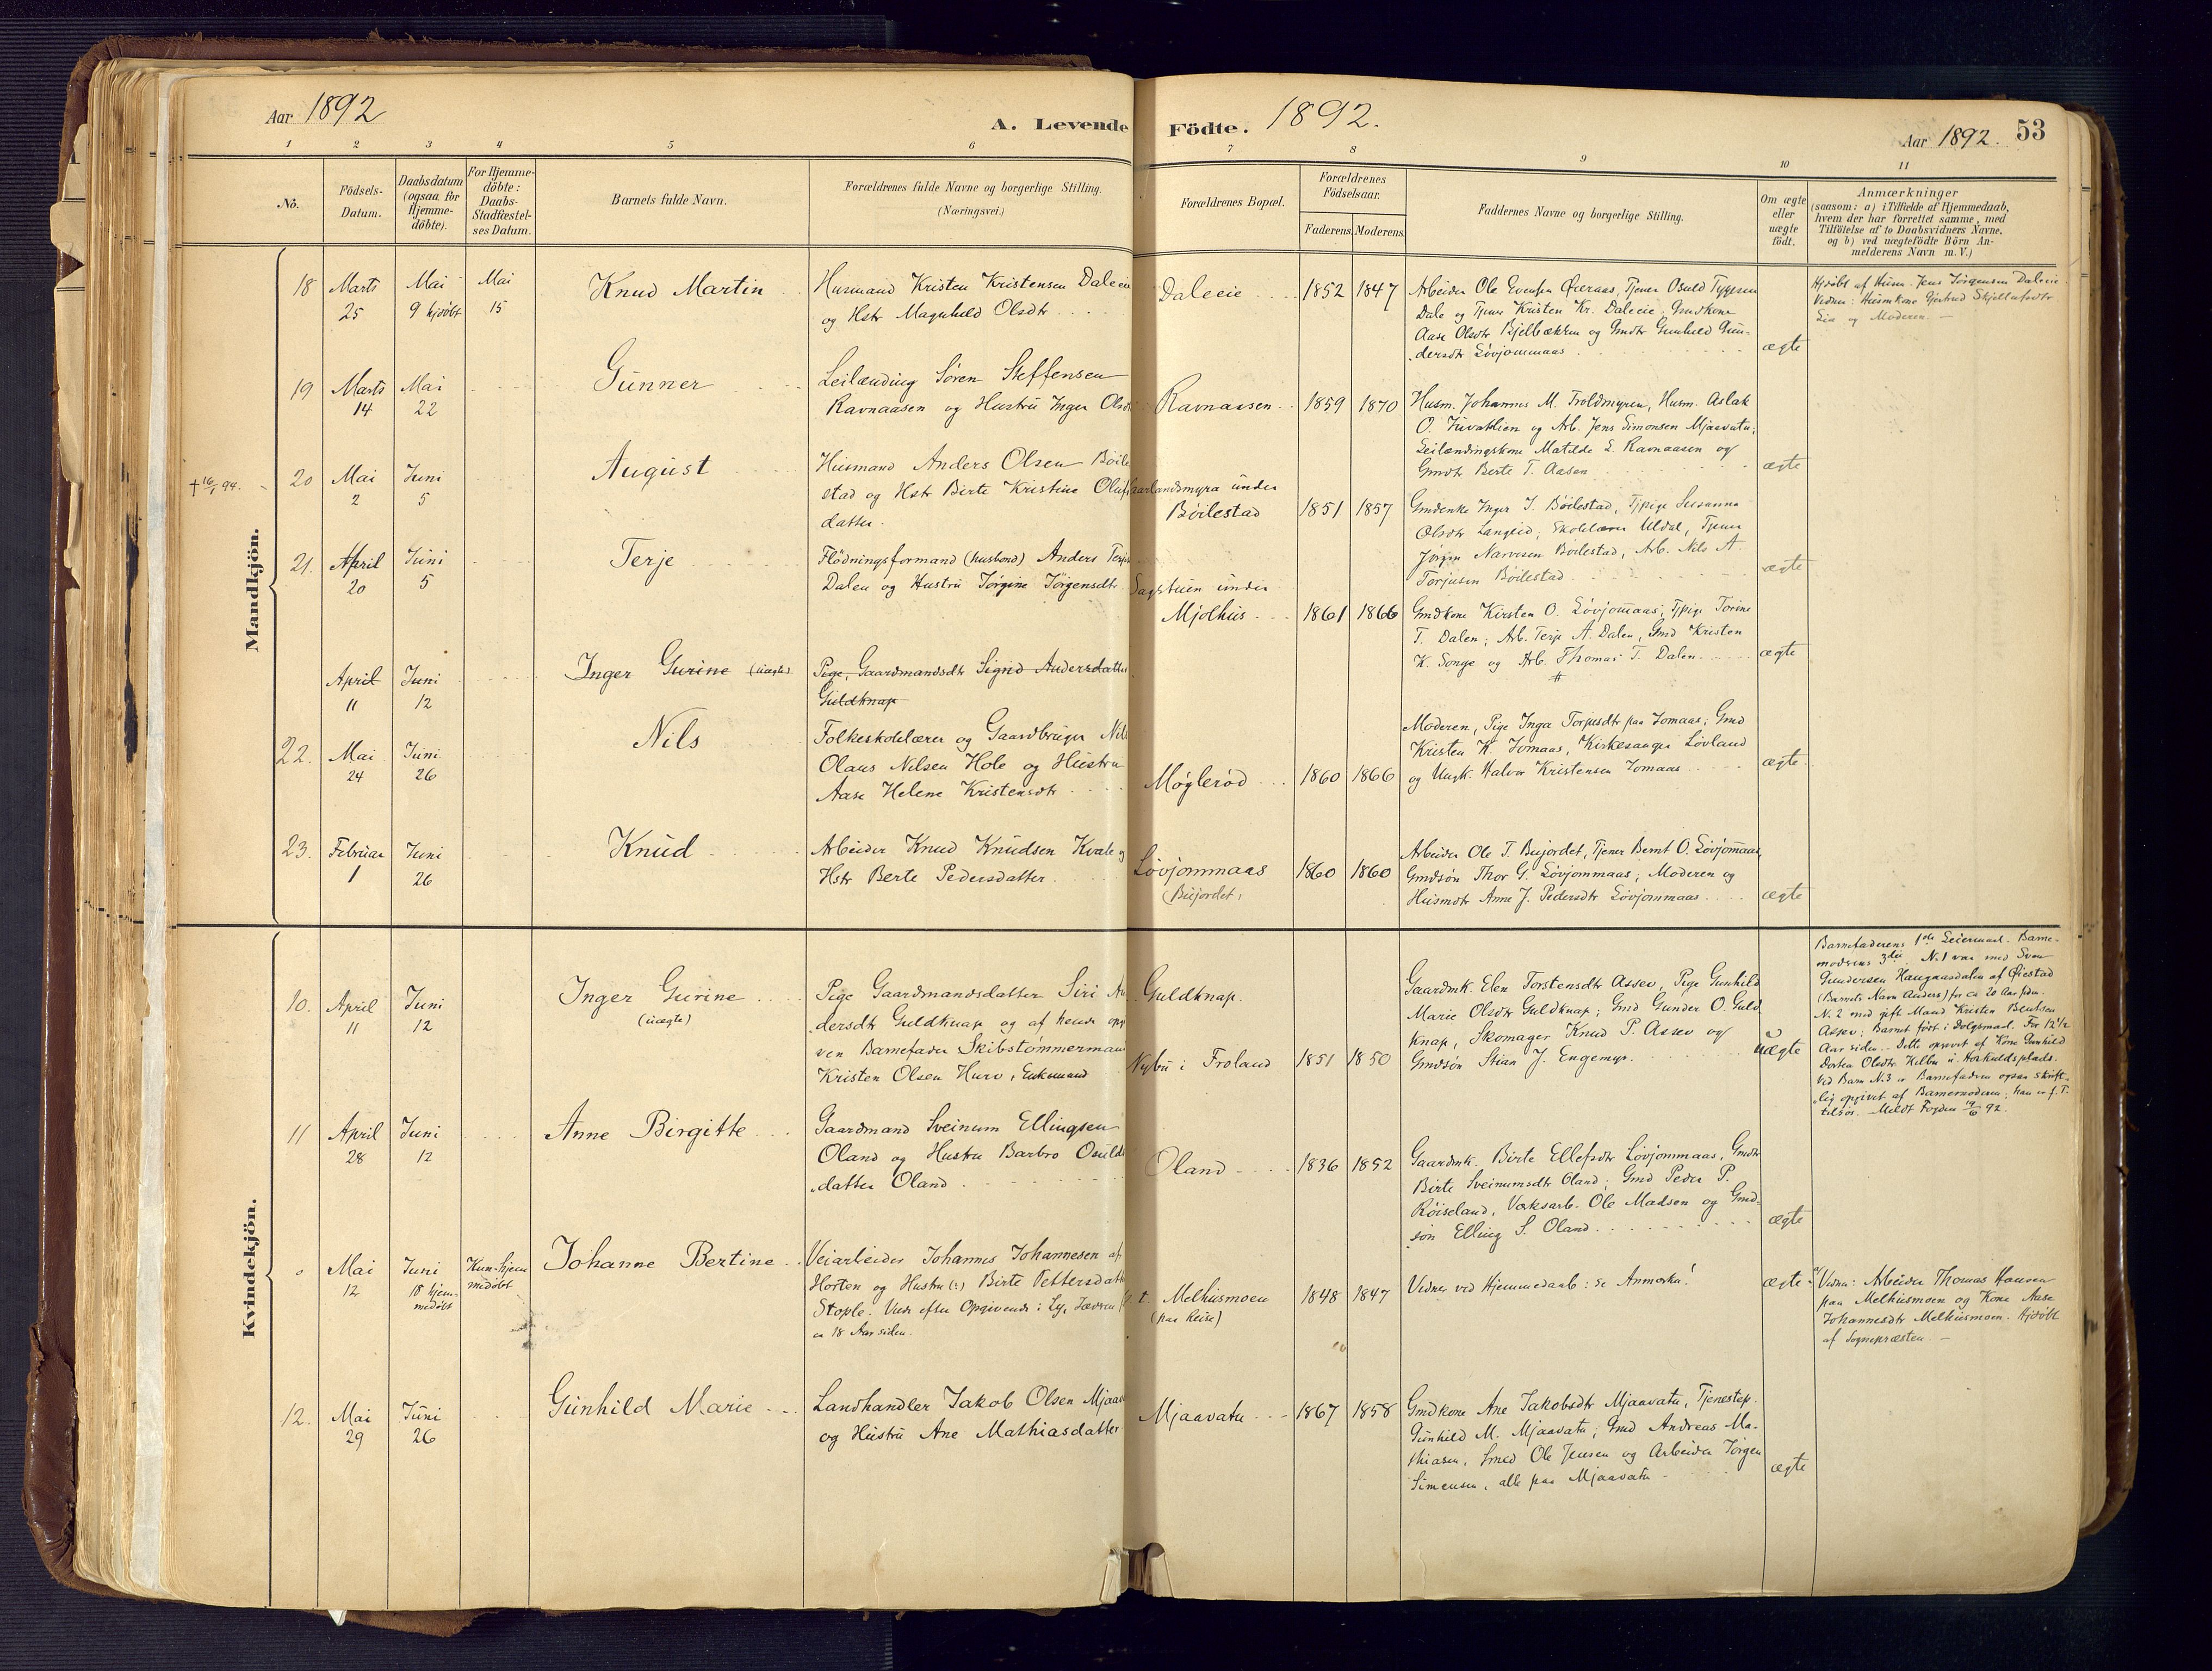 Aar 1892
A. Levende Födte. 1892.
Aar 1892. 53
1 2 3 4 5 6 7 8 9 10 11
No.
Födsels-Datum.
Daabsdatum (ogsaa for Hjemmedöbte).
For Hjemmedöbte: Daabs-Stadfæstelses Datum.
Barnets fulde Navn.
Forældrenes fulde Navne og borgerlige Stilling.
(Næringsvei.)
Forældrenes Bopæl.
Forældrenes Födselsaar.
Faderens. Moderens.
Faddernes Navne og borgerlige Stilling.
Om ægte eller uægte födt.
Anmærkninger
(saasom: a) i Tilfælde af Hjemmedaab,
hvem der har forrettet samme, med
Tilföielse af to Daabsvidners Navne.
og b) ved uægtefödte Börn An-
melderens Navn m. V.)
Mandkjön.
18 Marts 25 Mai 9 hjdöbt Mai 15
Knud Martin
Husmand Kristen Kristensen Daleeie
og Hstr Magnhild Olsdtr
Daleeie 1852 1847
Arbeider Ole Evensen, Tjener Osuld
Dale og Tjener Kristen Kr. Daleeie, Gmdkone
Aase Olsdtr og Gmdtr Gunhild Gun-
dersdtr Lövjommaas
ægte
Hjdöbt af Husm. Jens Jörgensen Daleeie
Vidner: Husmkone
Lia og Moderen.
19 Marts 14 Mai 22
Gunner
Leilænding Sören Steffensen
Ravnaasen og Hustru Inger Olsdtr
Ravnaasen 1859 1870
Husm. Johannes M. Troldmyren, Husm. Aslak
O. og Arb. Jens Simonsen Mjaavatn;
Leilændingskone Matilde L. Ravnaasen og
Gmdtr Berte T. Aasen
ægte
† 16/1 94.
20 Mai 2 Juni 5
August
Husmand Anders Olsen Böile-
stad og Hstr Birte Kristine Olufs
datter.
landsmyra under
Böilestad 1851 1857
Gmdenke Inger J. Böilestad, Tjpige Susanna
Olsdtr Langeid, Skolelærer Uldal, Tjener
Jörgen Narvesen Böilestad, Arb. Nils A.
Torjusen Böilestad
ægte
21. April 20 Juni 5
Terje
Flödningsformand (husbond) Anders Terjes
Dalen og Hustru Jörgine Jörgensdtr
Sagstuen under
Mjölhus 1861 1866
Gmdkone Kirsten O. Lövjomaas, Tjpige Torine
T. Dalen; Arb. Terje A. Dalen, Gmd Kristen
K. Songe og Arb. Thomas T. Dalen
ægte
April 11 Juni 12
Inger Gurine (uægte)
Pige, Gaardmandsdtr Signe Andersdatter
Guldknap
22. Mai 24 Juni 26
Nils
Folkeskolelærer og Gaardbruger Nils
Olaus Nilsen Hole og Hustru
Aase Helene Kristensdtr
Möglerød 1860 1866
Moderen, Pige Inga Torjusdtr paa Jomaas; Gmd
Kristen K. Jomaas, Kirkesanger Lövland
og Ungk. Halvor Kristensen Jomaas
ægte
23. Februar 1 Juni 26
Knud
Arbeider Knud Knudsen Kvale og
Hstr Berte Pedersdatter
Lövjommaas
(Bujordet) 1860 1860
Arbeider Ole T. Bujordet, Tjener Bernt O. Lövjomaas,
Gmdsön Thor G. Lövjommaas; Moderen og
Husmdtr Anne J. Pedersdtr Lövjommaas
ægte
Kvindekjön.
10. April 11 Juni 12
Inger Gurine
(uægte)
Pige Gaardmandsdatter Siri An-
dersdtr Guldknap og af hende opgi-
ven Barnefader Skibstömmermand
Kristen Olsen Huro, Enkemand
Guldknap.
Nybu i Froland 1851 1850
Gaardmk. Elen Torstensdtr Assev, Pige Gunhild
Marie Olsdtr Guldknap; Gmd Gunder O. Guld
knap, Skomager Knud P. Assev og
Gmdsön Stian J. Engemyr.
uægte
Barnefaderens 1ste Leiermaal. Barne-
moderens 3die. N. 1 var med Sven
Gundersen Haugaasdalen af Øiestad
(Barnets Navn Anders) for ca 20 Aar siden.
N. 2 med gift Mand Kristen Bentsen
Assev; Barnet födt i Dolgsmaal. For 12 1/2
Aar siden. Dette opgivet af Kone Gunhild
Dortea Olsdtr
Ved Barn N. 3 er Barnefaderen ogsaa skrift-
lig opgivet af Barnemoderen; han er f. T.
tilsös. Meldt Fogden 19/6 92.
11 April 28 Juni 12
Anne Birgitte
Gaardmand Sveinum Ellingsen
Oland og Hustru Barbro Osulds
datter Oland
Oland 1836 1852
Gaardmk. Birte Ellefsdtr Lövjommaas, Gmdtr
Birte Sveinumsdtr Oland; Gmd Peder P.
Röiseland, Værksarb. Ole Madsen og Gmd-
sön Elling S. Oland
ægte
Mai 12 Juni 18 hjem-medöbt Kun hjem medöbt
Johanne Bertine
Veiarbeider Johannes Johannesen af
Horten og Hustru (:) Birte Pettersdatter
Stople. Viede efter Opgivende i
ca 18 Aar siden.
t. Melhusmoen
(paa Reise) 1848 1847
Vidner ved Hjemmedaab: se Anmærkn!
ægte
Vidner: Arbeider Thomas Hansen
paa Melhusmoen og Kone Aase
Johannesdtr Melhusmoen. Hjdöbt
af Sognepræsten.
12. Mai 29 Juni 26
Gunhild Marie
Landhandler Jakob Olsen Mjaav
og Hustru Ane Mathiasdatter
Mjaavatn 1867 1858
Gmdkone Ane Jakobsdtr Mjaavatn, Tjenestep.
Gunhild M. Mjaavatn; Gmd Andreas Ma-
thiasen, Smed Ole Jensen og Arbeider Jörgen
Simensen, alle paa Mjaavatn
ægte